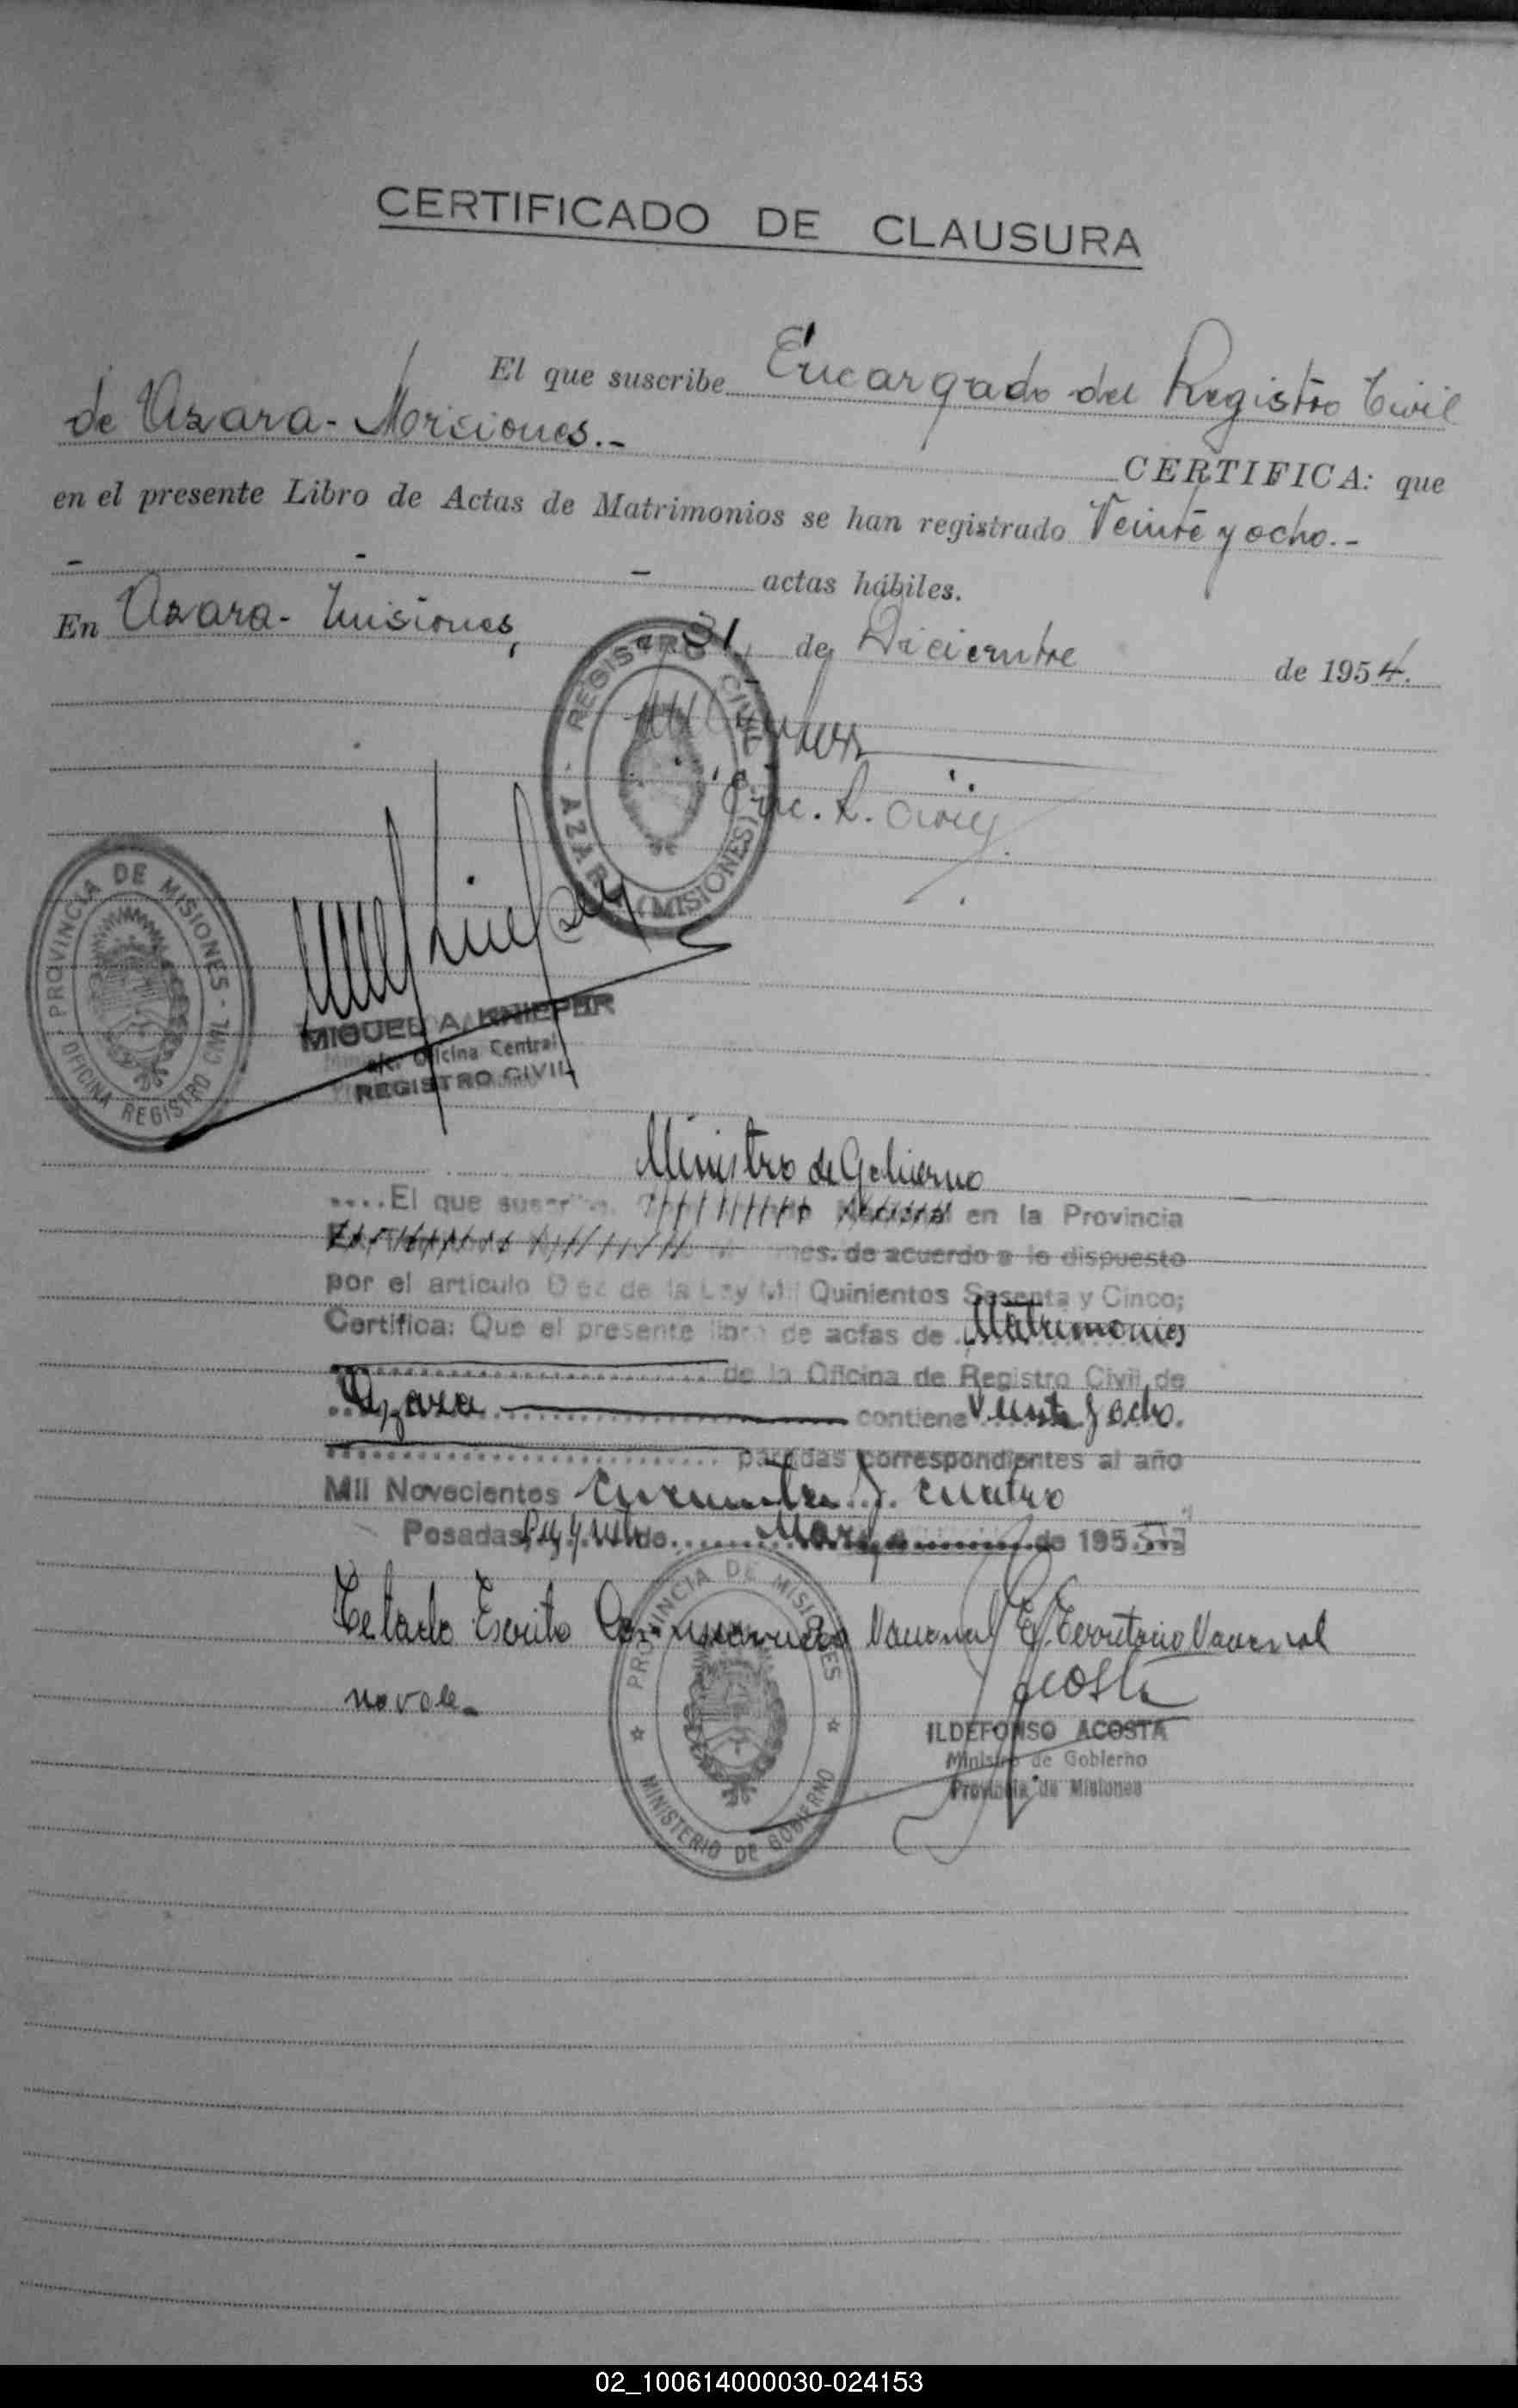 CERTIFICADO DE CLAUSURA
El que suscribe Encargado del Registro Civil
de Azara - Misiones.-
CERTIFICA: que
en el presente Libro de Actas de Matrimonios se han registrado Veinte y ocho.-
- - - actas hábiles.
En Azara - Misiones, 31 de Diciembre de 1954.
REGISTRO CIVIL - AZARA (MISIONES)
Enc. R. Civil
PROVINCIA DE MISIONES - OFICINA REGISTRO CIVIL
MIGUEL A. KNIEPPER
Oficina Central
REGISTRO CIVIL
Ministro de Gobierno
....El que suscribe, Nacional en la Provincia
de acuerdo a lo dispuesto
por el artículo Diez de la Ley Mil Quinientos Sesenta y Cinco;
Certifica: Que el presente libro de actas de Matrimonios
de la Oficina de Registro Civil de
Azara contiene Veinte y ocho.
partidas correspondientes al año
Mil Novecientos Cincuenta y cuatro
Posadas, de Marzo de 195
Testado Escrito Nacional E/. Territorio Nacional
no vale.
PROVINCIA DE MISIONES
MINISTERIO DE GOBIERNO
Acosta
ILDEFONSO ACOSTA
Ministro de Gobierno
Provincia de Misiones
02_100614000030-024153